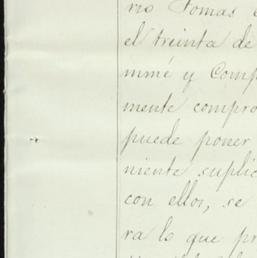 rio Tomas
el treinta de
mmé y Comp
mente compro
puede poner
niente suplic
con ellos, se
ra lo que pr